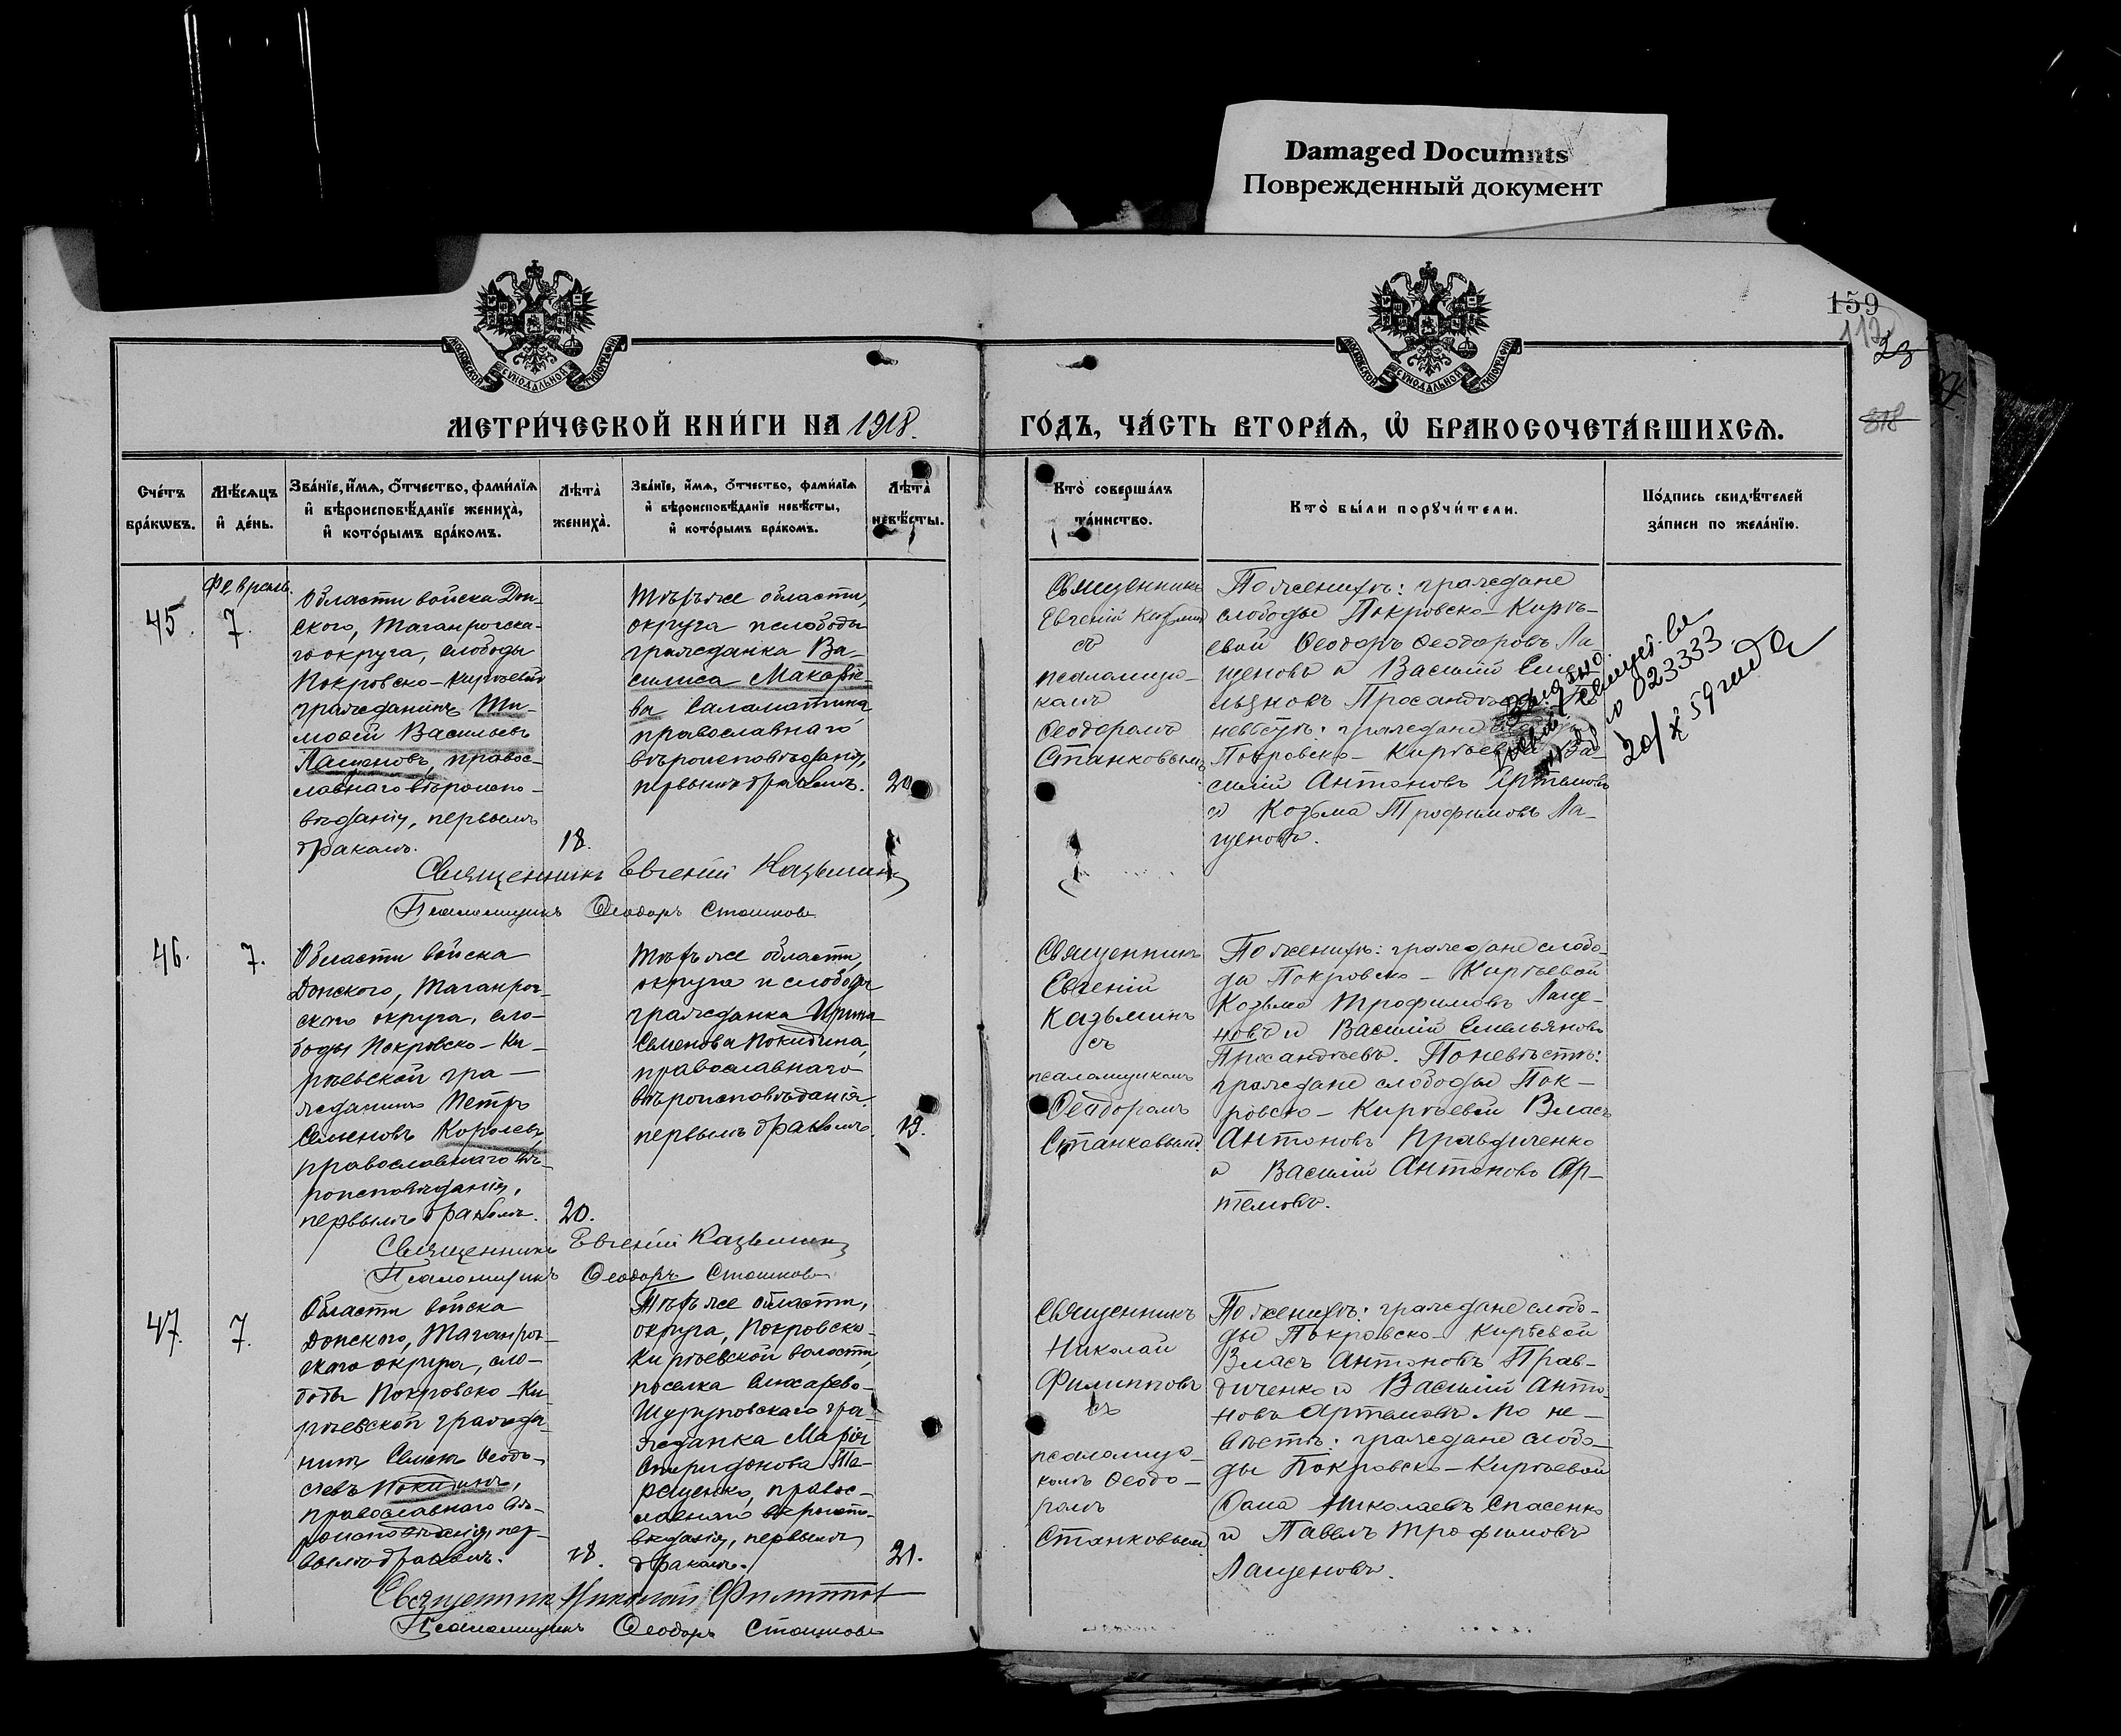 Damaged Documnts
Поврежденный документ
159
112
23
318
МОСКОВСКОЙ СѴНОДАЛЬНОЙ ТИПОГРАФІИ
МОСКОВСКОЙ СѴНОДАЛЬНОЙ ТИПОГРАФІИ
МЕТРИ́ЧЕСКОЙ КНИ́ГИ НА 1918.
ГО́ДЪ, ЧА́СТЬ ВТОРА́Ѧ, Ѡ҆ БРАКОСОЧЕТА́ВШИХСѦ.
Сче́тъ
бра́кѡвъ.
Мѣ́сѧцъ
и҆ де́нь.
Зва́нїе, и҆́мѧ, ѻ҆́тчество, фами́лїѧ
и҆ вѣроисповѣ́данїе жениха̀,
и҆ кото́рымъ бра́комъ.
Лѣта̀
жениха̀.
Зва́нїе, и҆́мѧ, ѻ҆́тчество, фами́лїѧ
и҆ вѣроисповѣ́данїе невѣ́сты,
и҆ кото́рымъ бра́комъ.
Лѣта̀
невѣ́сты.
Кто̀ соверша́лъ
та́инство.
Кто̀ бы́ли порꙋчи́тели.
По́дпись свидѣ́телей
за́писи по жела́нїю.
Февраль.
45.
7.
Области войска Дон-
ского, Таганрогска-
го округа, слободы
Покровско-Кирѣевой
гражданинъ Ти-
моѳей Васильевъ
Лащеновъ, правос-
лавнаго вѣроиспо-
вѣданія, первымъ
бракомъ.
18.
Тѣхъ же области,
округа и слободы
гражданка Ва-
силиса Макаріе-
ва Саламатина
православнаго
вѣроисповѣданія,
первымъ бракомъ.
20
Священникъ
Евгеній
съ
псаломщи-
комъ
Ѳеодоромъ
Станковымъ
По женихѣ: граждане
слободы Покровско-Кирѣ-
евой Ѳеодоръ Ѳеодоровъ Ла-
щеновъ и Василій Еме-
льяновъ По
невѣстѣ: граждане
Покровско-Кирѣевой Ва-
силій Антоновъ Артемовъ
и Козьма Трофимовъ Ла-
щеновъ.
023333
20/X 59 года
Священникъ Евгеній Казьминъ
Псаломщикъ Ѳеодоръ Сташковъ
46.
7.
Области войска
Донского, Таганрог-
скаго округа, сло-
боды Покровско-Ки-
рѣевской гра-
жданинъ Петръ
Семеновъ Королевъ,
православнаго вѣ-
роисповѣданія,
первымъ бракомъ.
20.
Тѣхъ же области,
округа и слободы
гражданка Ирина
Семенова Покидина,
православнаго
вѣроисповѣданія,
первымъ бракомъ.
19.
Священникъ
Евгеній
Казьминъ
съ
псаломщикомъ
Ѳеодоромъ
Станковымъ.
По женихѣ: граждане слобо-
ды Покровско-Кирѣевой
Козьма Трофимовъ Лаще-
новъ и Василій Емельяновъ
По невѣстѣ:
граждане слободы Пок-
ровско-Кирѣевой Власъ
Антоновъ Правдиченко
и Василій Антоновъ Ар-
темовъ.
Священникъ Евгеній Казьминъ
Псаломщикъ Ѳеодоръ Сташковъ
47.
7.
Области войска
Донского, Таганрог-
скаго округа, сло-
боды Покровско-Ки-
рѣевской гражда-
нинъ Семенъ Ѳеодо-
сіевъ Покидинъ,
православнаго вѣ-
роисповѣданія, пер-
вымъ бракомъ.
18.
Тѣхъ же области,
округа, Покровско-
Кирѣевской волости,
поселка
гра-
жданка Марія
Спиридонова Та-
ращенко, правос-
лавнаго вѣроиспо-
вѣданія, первымъ
бракомъ.
21.
Священникъ
Николай
Филипповъ
съ
псаломщи-
комъ Ѳеодо-
ромъ
Станковымъ
По женихѣ: граждане слобо-
ды Покровско-Кирѣевой
Власъ Антоновъ Прав-
диченко и Василій Анто-
новъ Артемовъ. По не-
вѣстѣ: граждане слобо-
ды Покровско-Кирѣевой
Ѳома Николаевъ Спасенко
и Павелъ Трофимовъ
Лащеновъ.
Священникъ Николай Филиппов
Псаломщикъ Ѳеодоръ Сташковъ